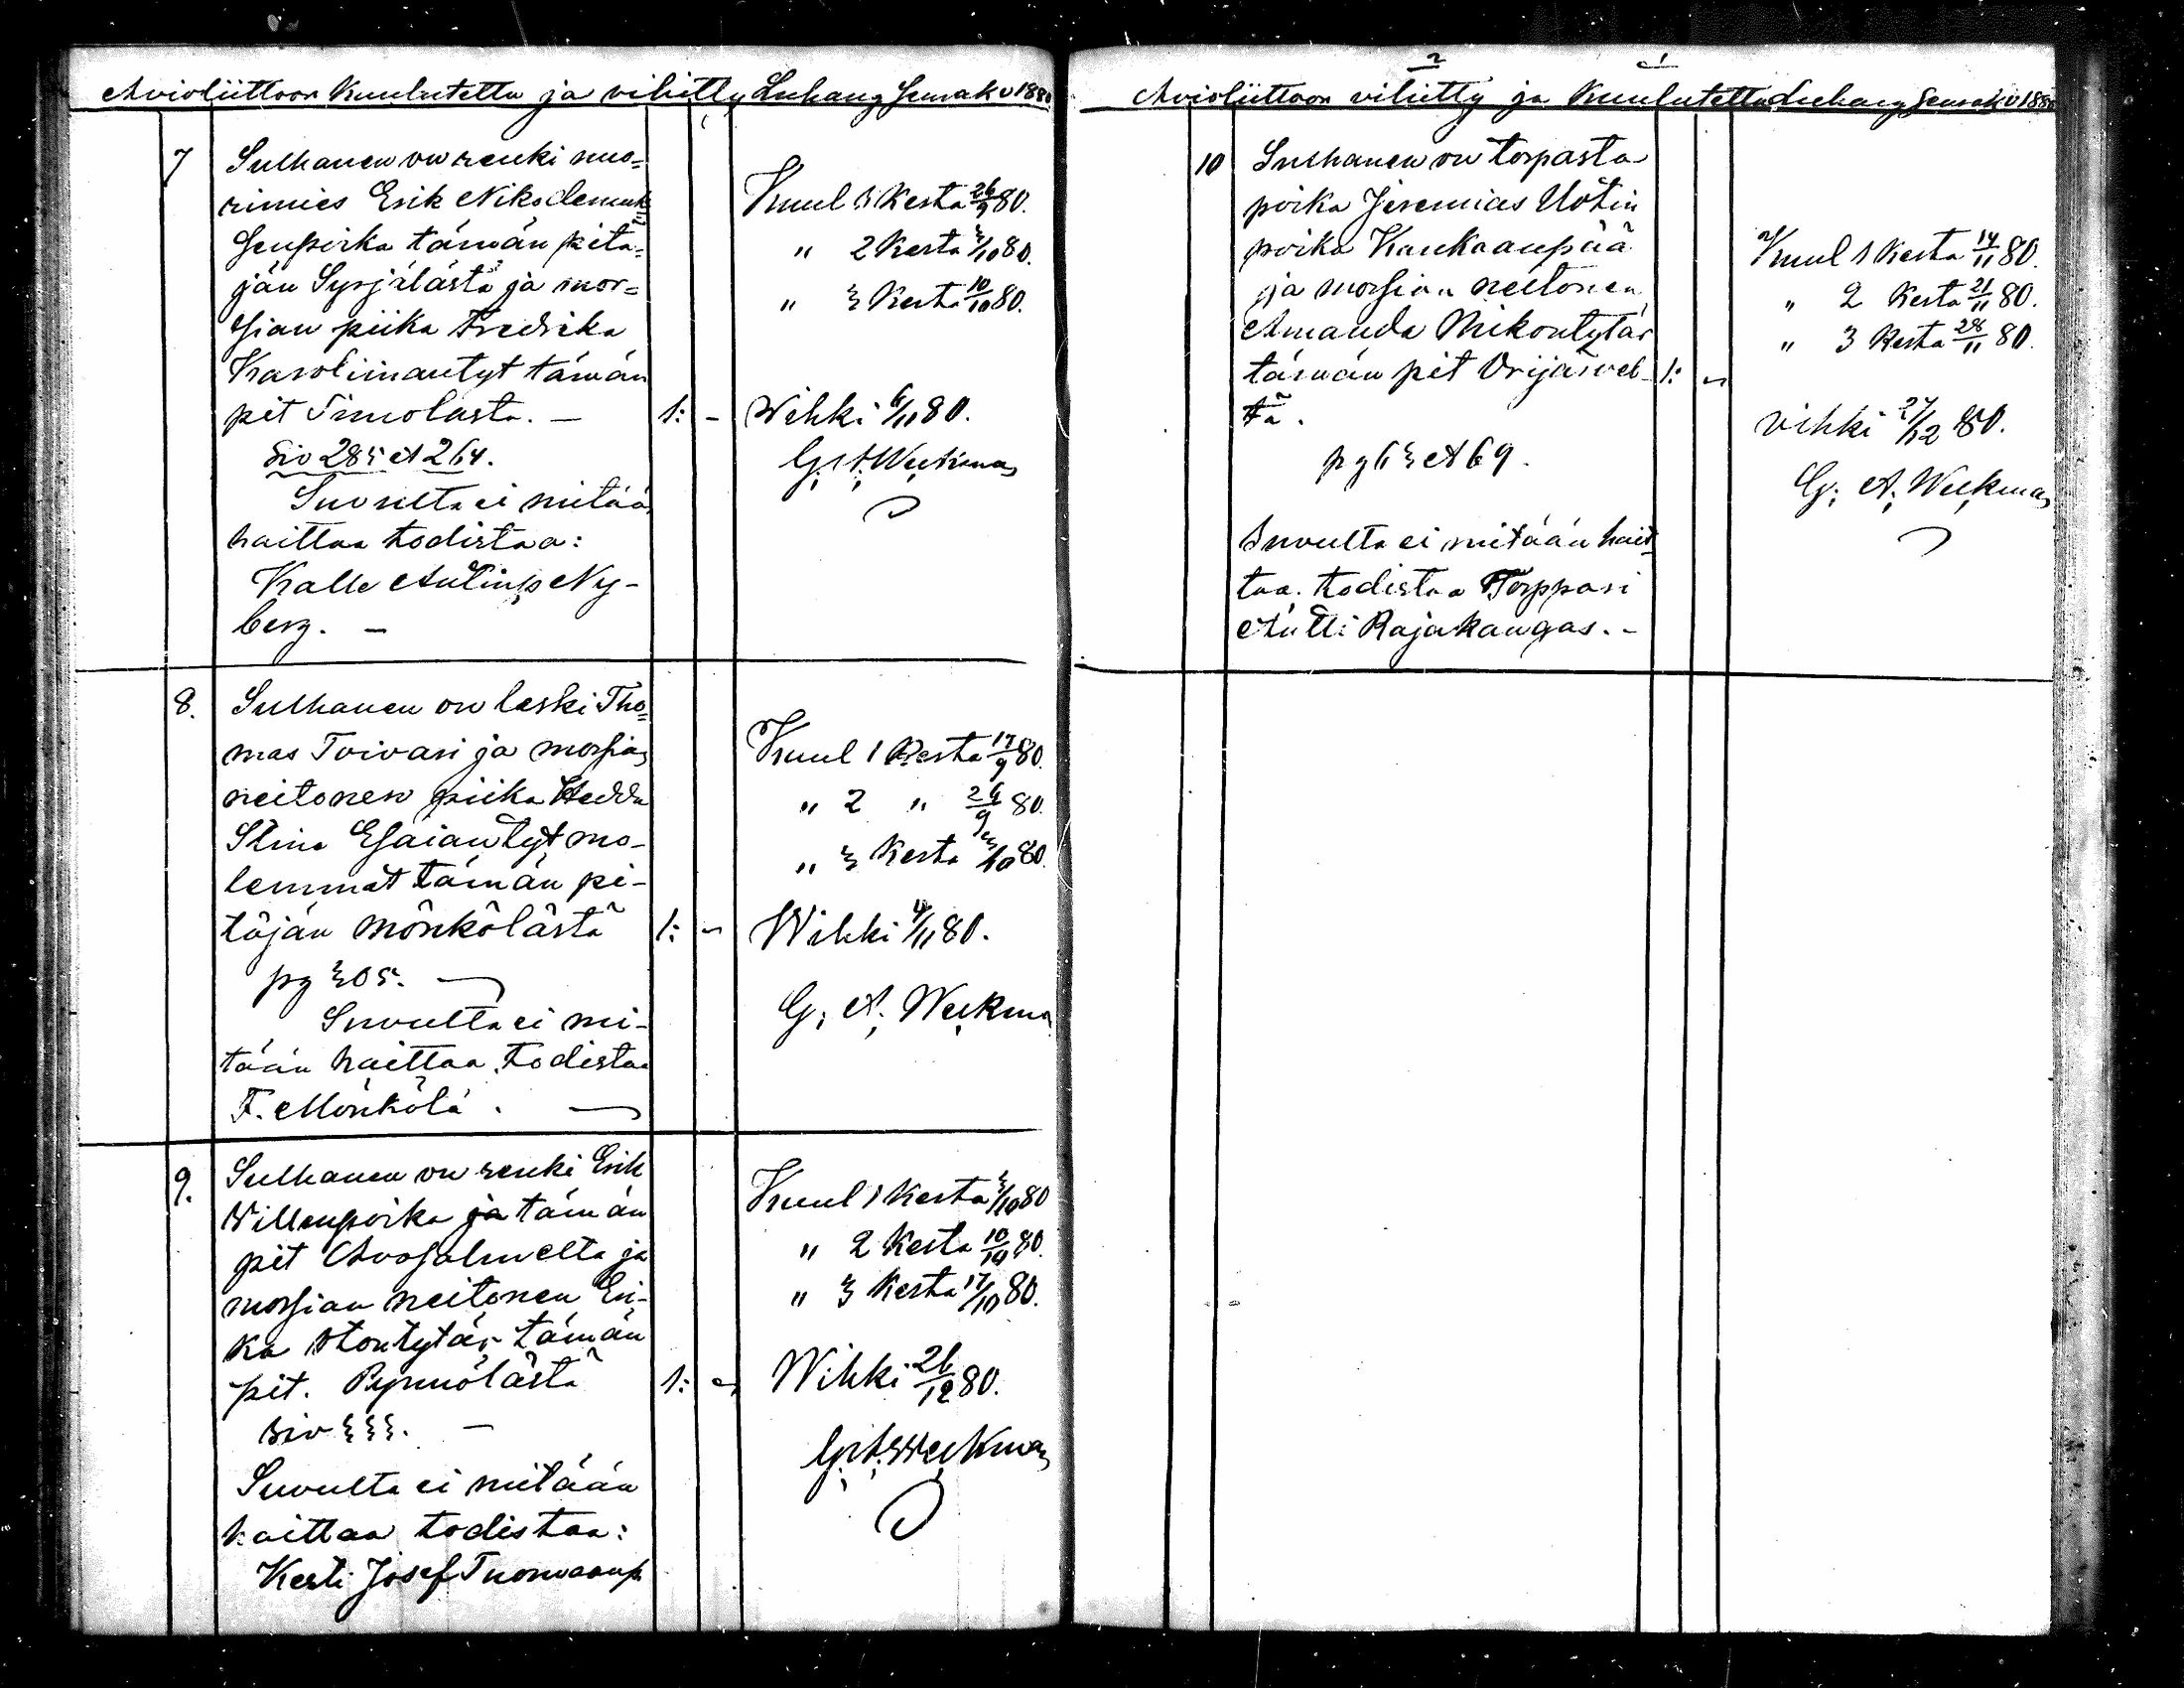 Avioliittoon Kuulutettu ja vihitty Luhang Seurak v 1880
7
Sulhanen on renki nuo=
rimies Erik Nikodemuk=
senpoika tämän pitä=
jän Syrjälästä ja mor=
sian piika Fredrika
Karoliinantyt tämän
pit Timolasta. –
Siv 285 et 264.
Suvulta ei mitää
haittaa todistaa:
Kalle Antinp Ny-
berg. –
1: –
Kuul 1 Kerta 26/9 80.
" 2 Kerta 3/10 80.
" 3 Kerta 10/10 80.
Wihki 6/11 80.
G. A. Weckman
8.
Sulhanen on leski Tho=
mas Toivari ja morsian
neitonen piika Hedda
Stina Esaiantyt mo-
lemmat tämän pi-
täjän Mönkölästä
pg 305. –
Suvulta ei mi-
tään haittaa todistaa
F. Mönkölä. –
1: –
Kuul 1 Kerta 17/9 80.
" 2 " 26/9 80.
" 3 Kerta 3/10 80.
Wihki 4/11 80.
G. A. Weckma
9.
Sulhanen on renki Erik
Willenpoika ja tämän
pit Avosalmelta ja
morsian neitonen Eri-
ka Ottontytär tämän
pit. Pynnölästä
siv 333. –
Suvulta ei mitään
haittaa todistaa:
Kesti Josef Tuomaanp
1: –
Kuul 1 Kerta 3/10 80
" 2 Kerta 10/10 80.
" 3 Kerta 17/10 80.
Wihki 26/12 80.
G. A. Weckman
Avioliittoon vihitty ja Kuulutettu Luhang Seurak v 1880
10
Sulhanen on torpasta
poika Jeremias Uotin
poika Kaukaanpää
ja morsian neitonen
Amanda Mikontytär
tämän pit Orijärvel-
tä.
pg 63 et 69.
Suvulta ei mitään hait=
taa todistaa Torppari
Antti Rajakangas. –
1: –
Kuul 1 Kerta 14/11 80.
" 2 Kerta 21/11 80.
" 3 Kerta 28/11 80.
vihki 27/12 80.
G. A. Weckman